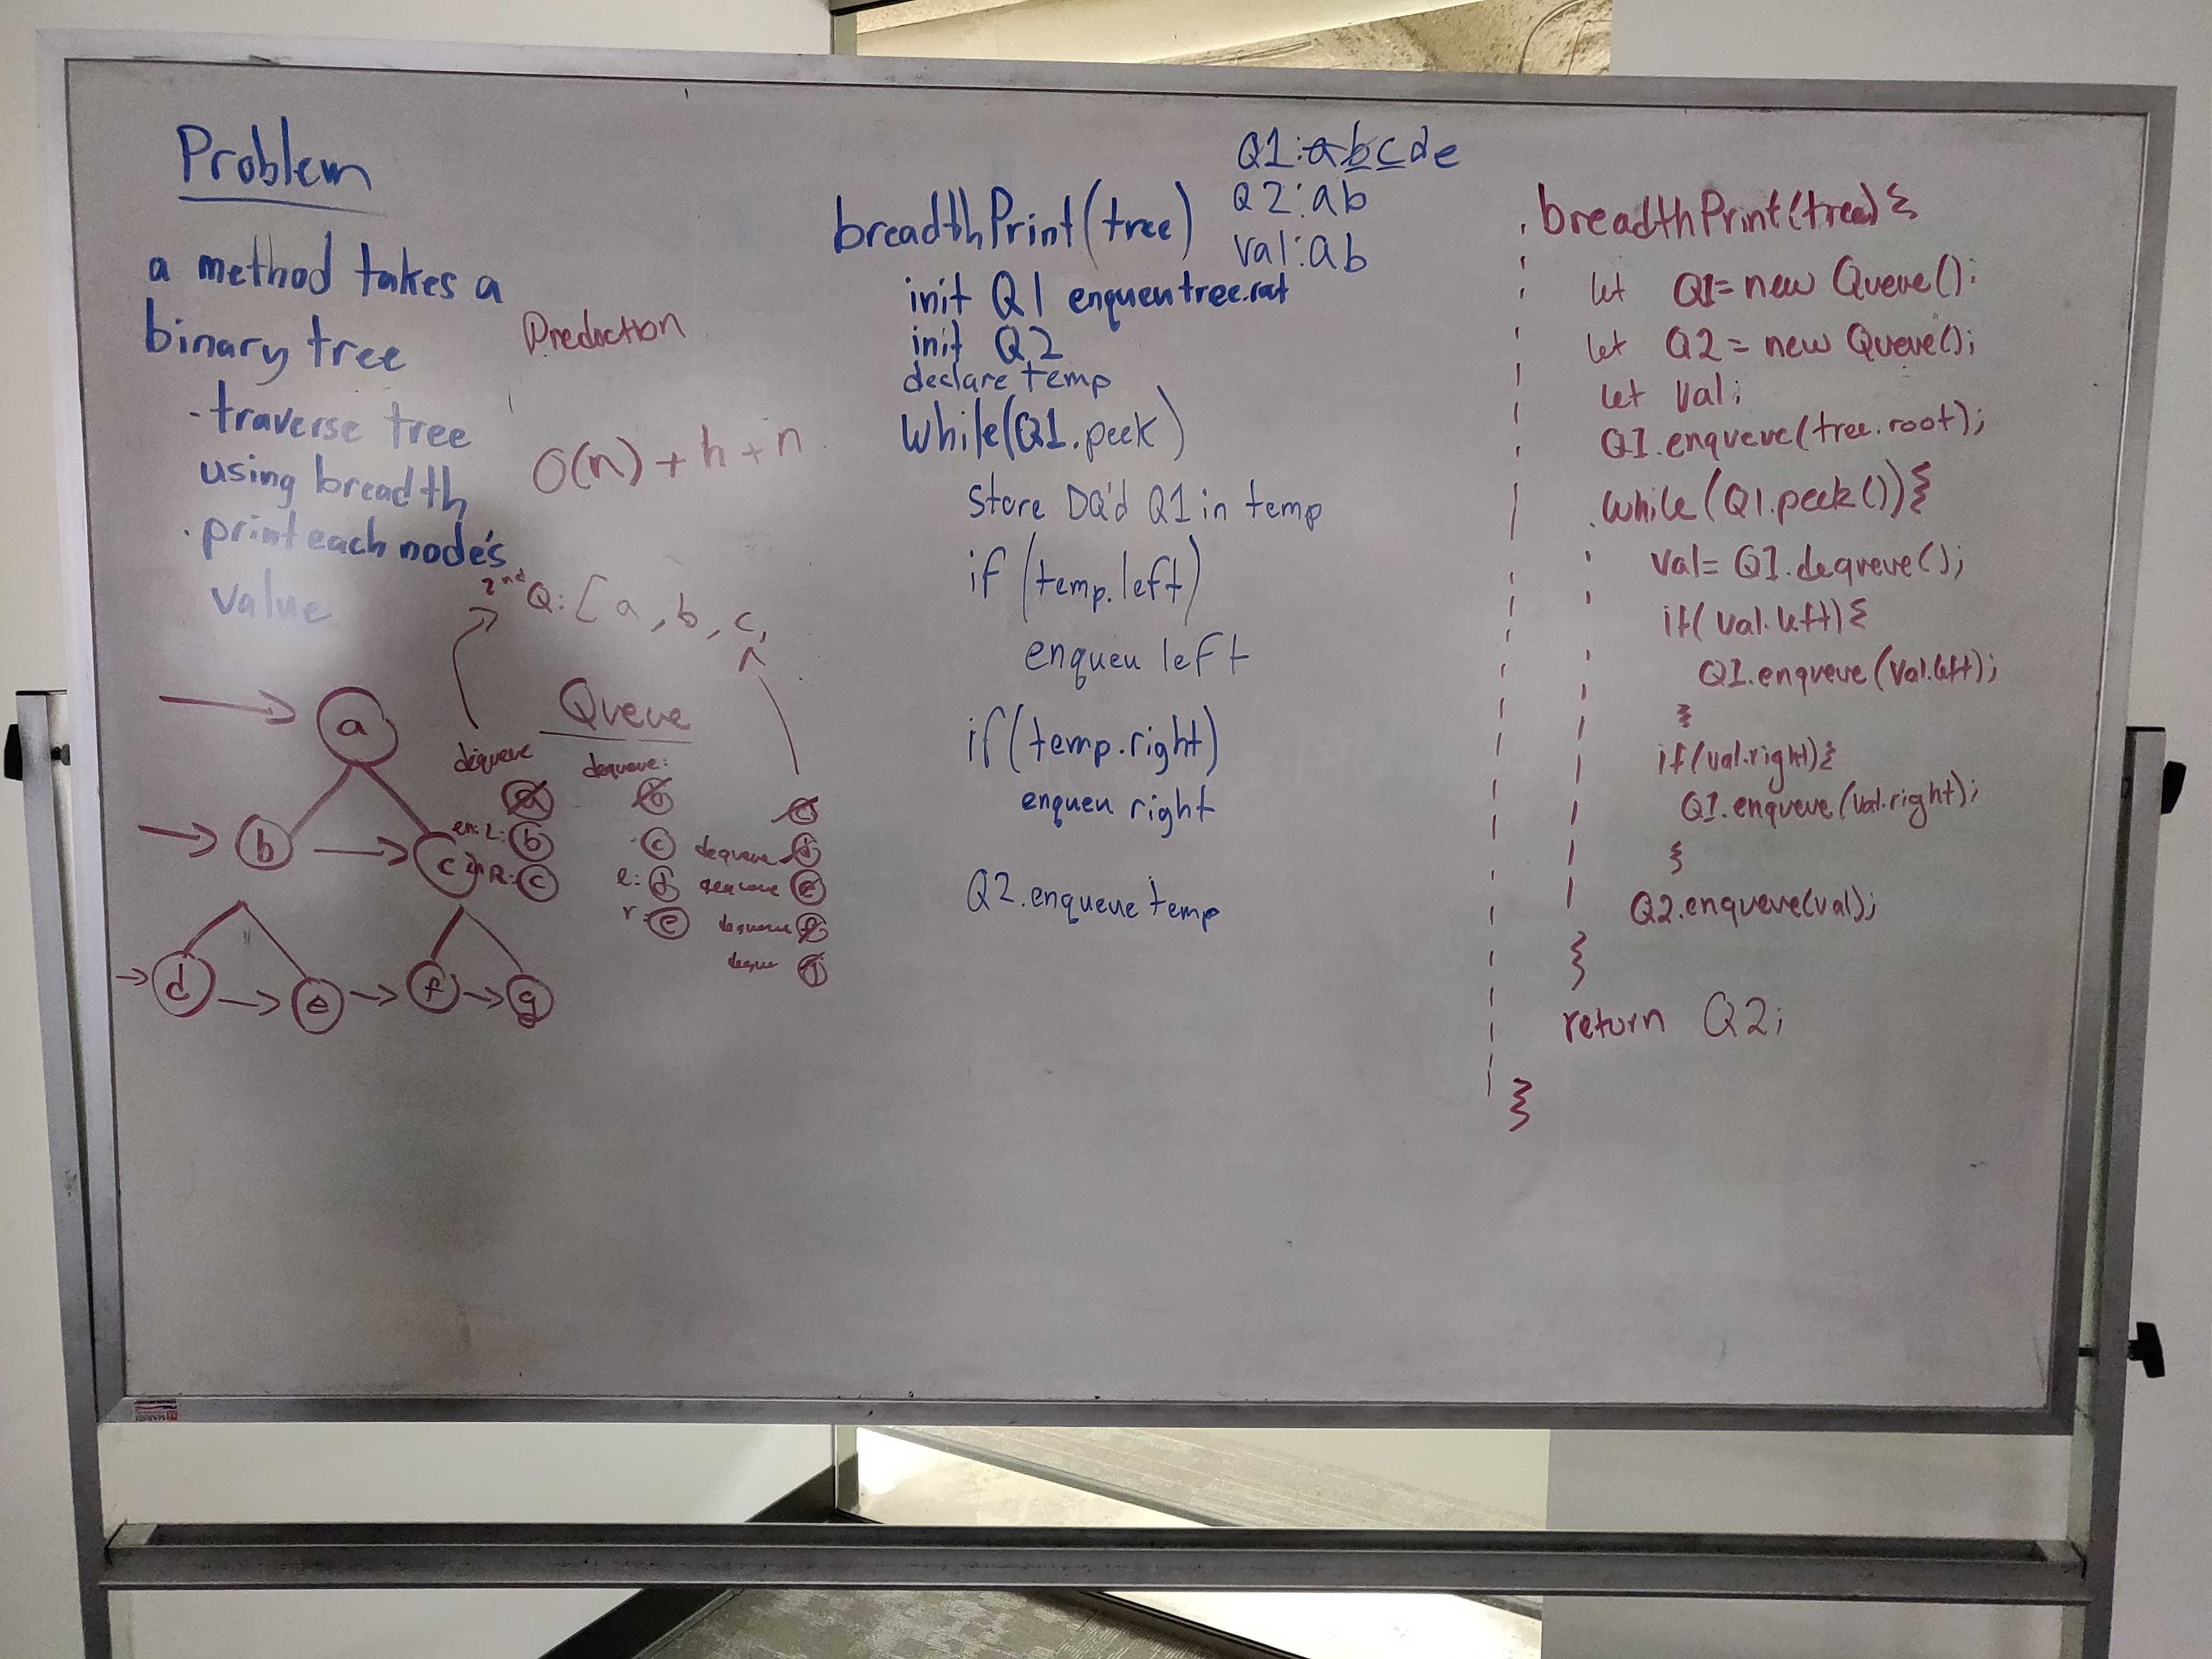 Problem
a method takes a
binary tree
- traverse tree
using breadth
. print each node's
value
Prediction
O(n) + h + n
2nd Q: [a, b, c,
Queue
a
b
c
d
e
f
g
dequeue
a
en: L: b
R: c
dequeue:
b
c
l: d
r: e
c
dequeue d
dequeue e
dequeue f
deque
Q1: a b c d e
Q2: a b
val: a b
breadthPrint(tree)
init Q1 enqueu tree.root
init Q2
declare temp
while(Q1.peek)
store DQ'd Q1 in temp
if (temp.left)
enqueu left
if (temp.right)
enqueu right
Q2.enqueue temp
breadthPrint(tree) {
let Q1 = new Queue();
let Q2 = new Queue();
let val;
Q1.enqueue(tree.root);
while (Q1.peek()) {
val = Q1.dequeue();
if( val.left) {
Q1.enqueue (val.left);
}
if(val.right) {
Q1.enqueue (val.right);
}
Q2.enqueue(val);
}
return Q2;
}